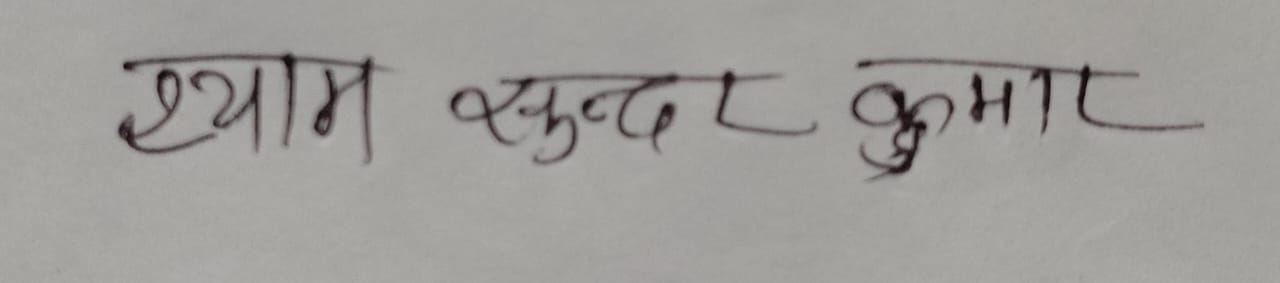 श्याम सुन्दर कुमार